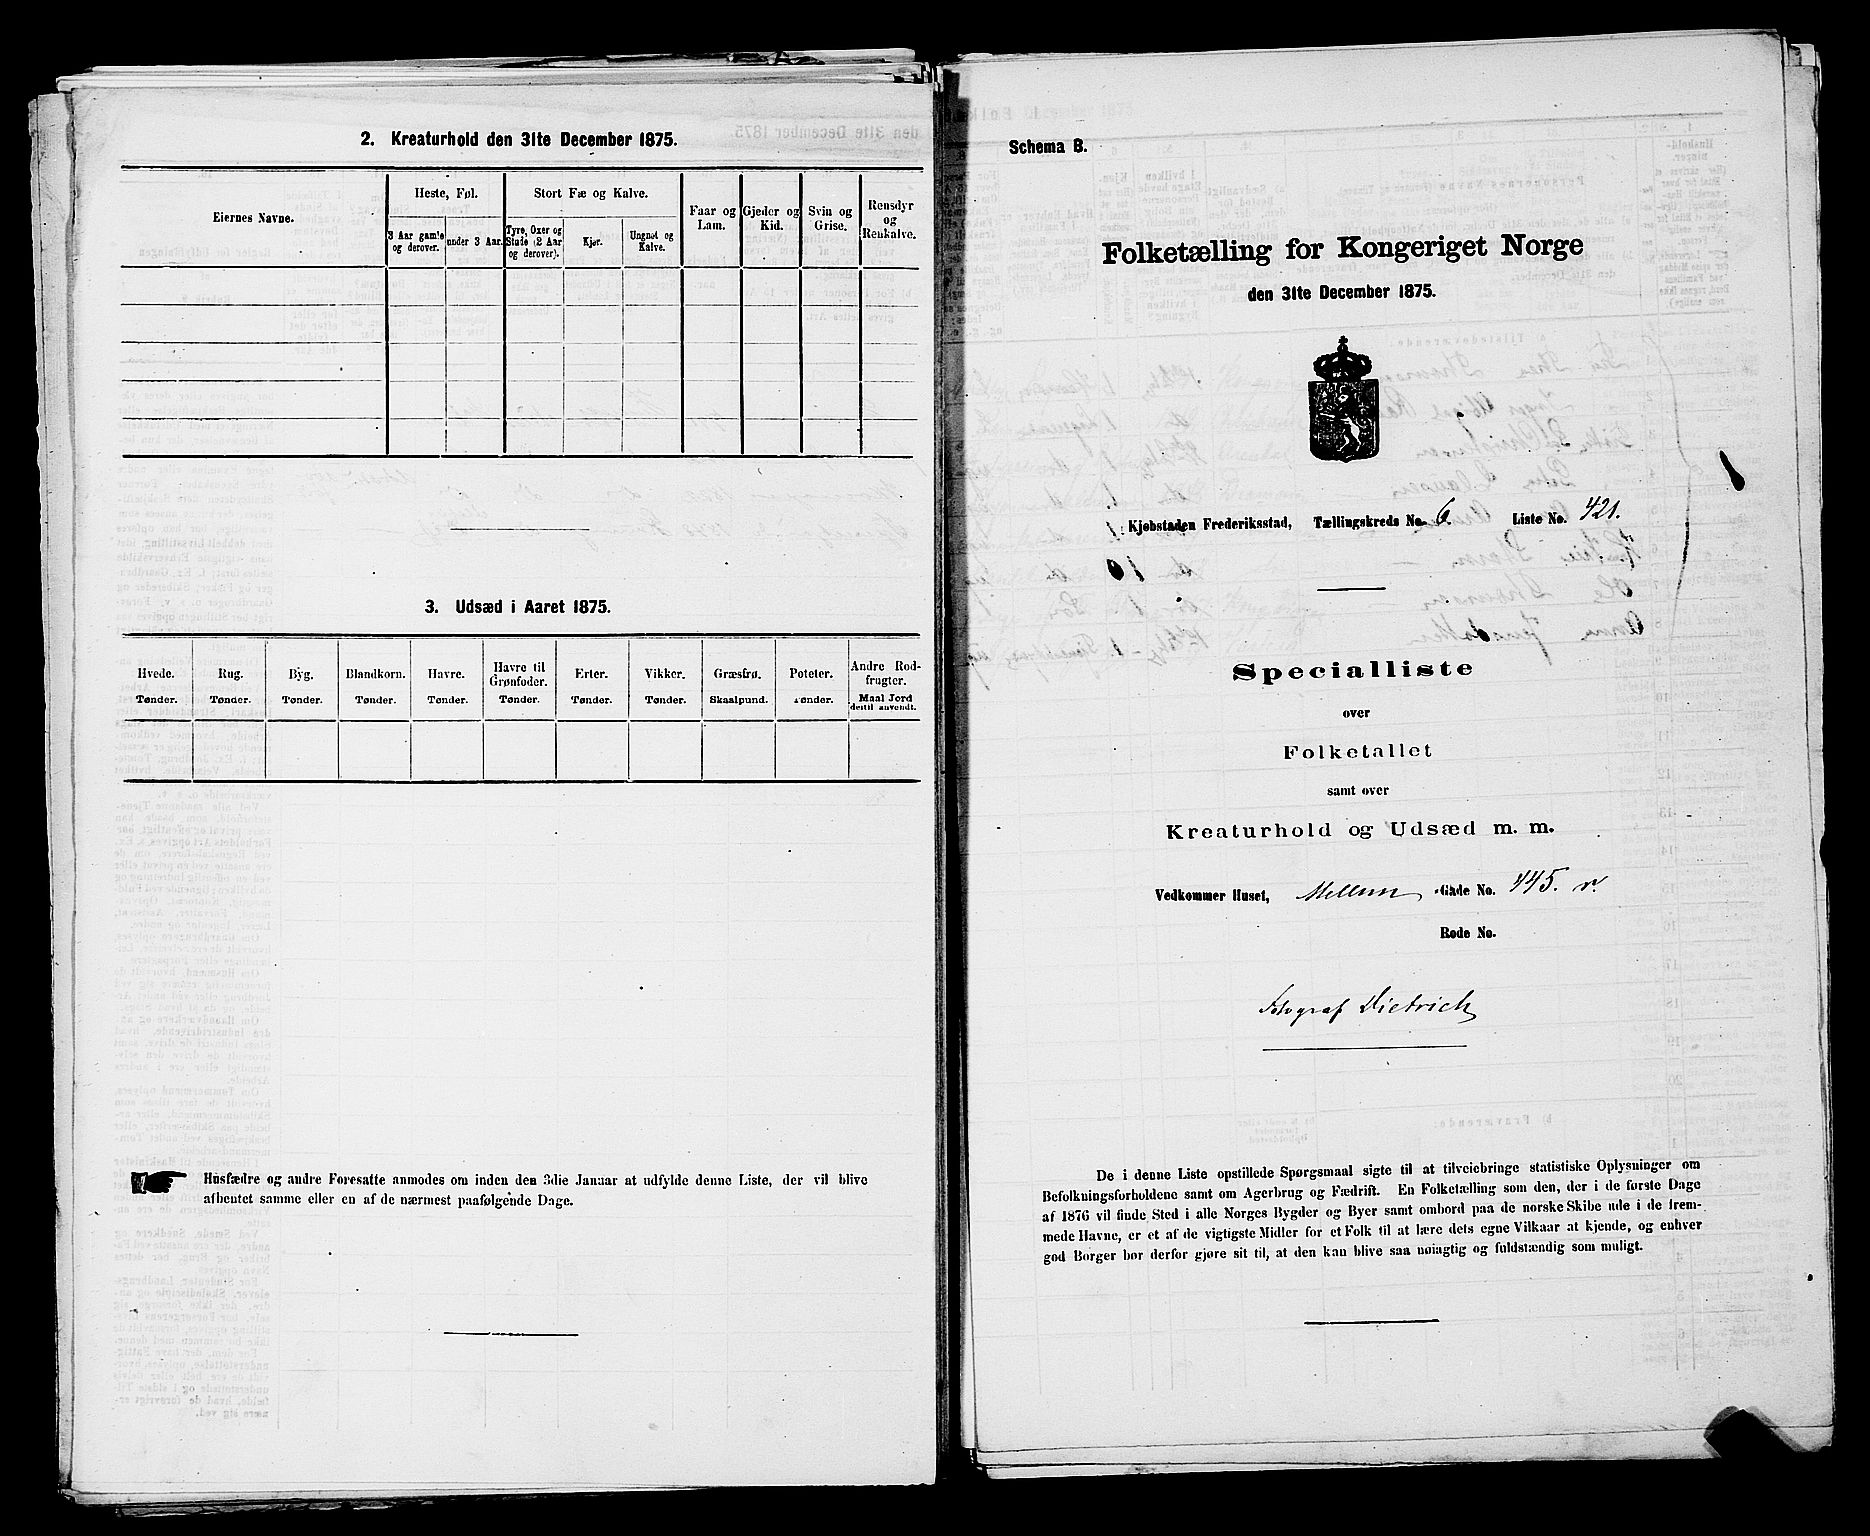 2. Kreaturhold den 31te December 1875.
Eiernes Navne.
Heste, Føl.
Stort Fæ og Kalve.
Faar og Lam.
Gjeder og Kid.
Svin og Grise.
Rensdyr og Renkalve.
3 Aar gamle og derover.
under 3 Aar.
Tyre, Oxer og Stude (2 Aar og derover).
Kjør.
Ungnøt og Kalve.
3. Udsæd i Aaret 1875.
Hvede. Rug. Byg. Blandkorn. Havre. Havre til Grønfoder. Erter. Vikker. Græsfrø. Poteter. Andre Rodfrugter.
Tønder. Tønder. Tønder. Tønder. Tønder. Tønder. Tønder. Tønder. Skaalpund. Tønder. Maal Jord dertil anvendt.
Husfædre og andre Foresatte anmodes om inden den 3die Januar at udfylde denne Liste, der vil blive
afhentet samme eller en af de nærmest paafølgende Dage.
Schema B.
Folketælling for Kongeriget Norge
den 31te December 1875.
Kjøbstaden Frederiksstad, Tællingskreds No. 6. Liste No. 421.
Specialliste
over
Folketallet
samt over
Kreaturhold og Udsæd m. m.
Vedkommer Huset, Mellem Gade No. 445. v.
Rode No.
Fotograf Dietrich
De i denne Liste opstillede Spørgsmaal sigte til at tilveiebringe statistiske Oplysninger om
Befolkningsforholdene samt om Agerbrug og Fædrift. En Folketælling som den, der i de første Dage
af 1876 vil finde Sted i alle Norges Bygder og Byer samt ombord paa de norske Skibe ude i de frem-
mede Havne, er et af de vigtigste Midler for et Folk til at lære dets egne Vilkaar at kjende, og enhver
god Borger bør derfor gjøre sit til, at den kan blive saa nøiagtig og fuldstændig som muligt.